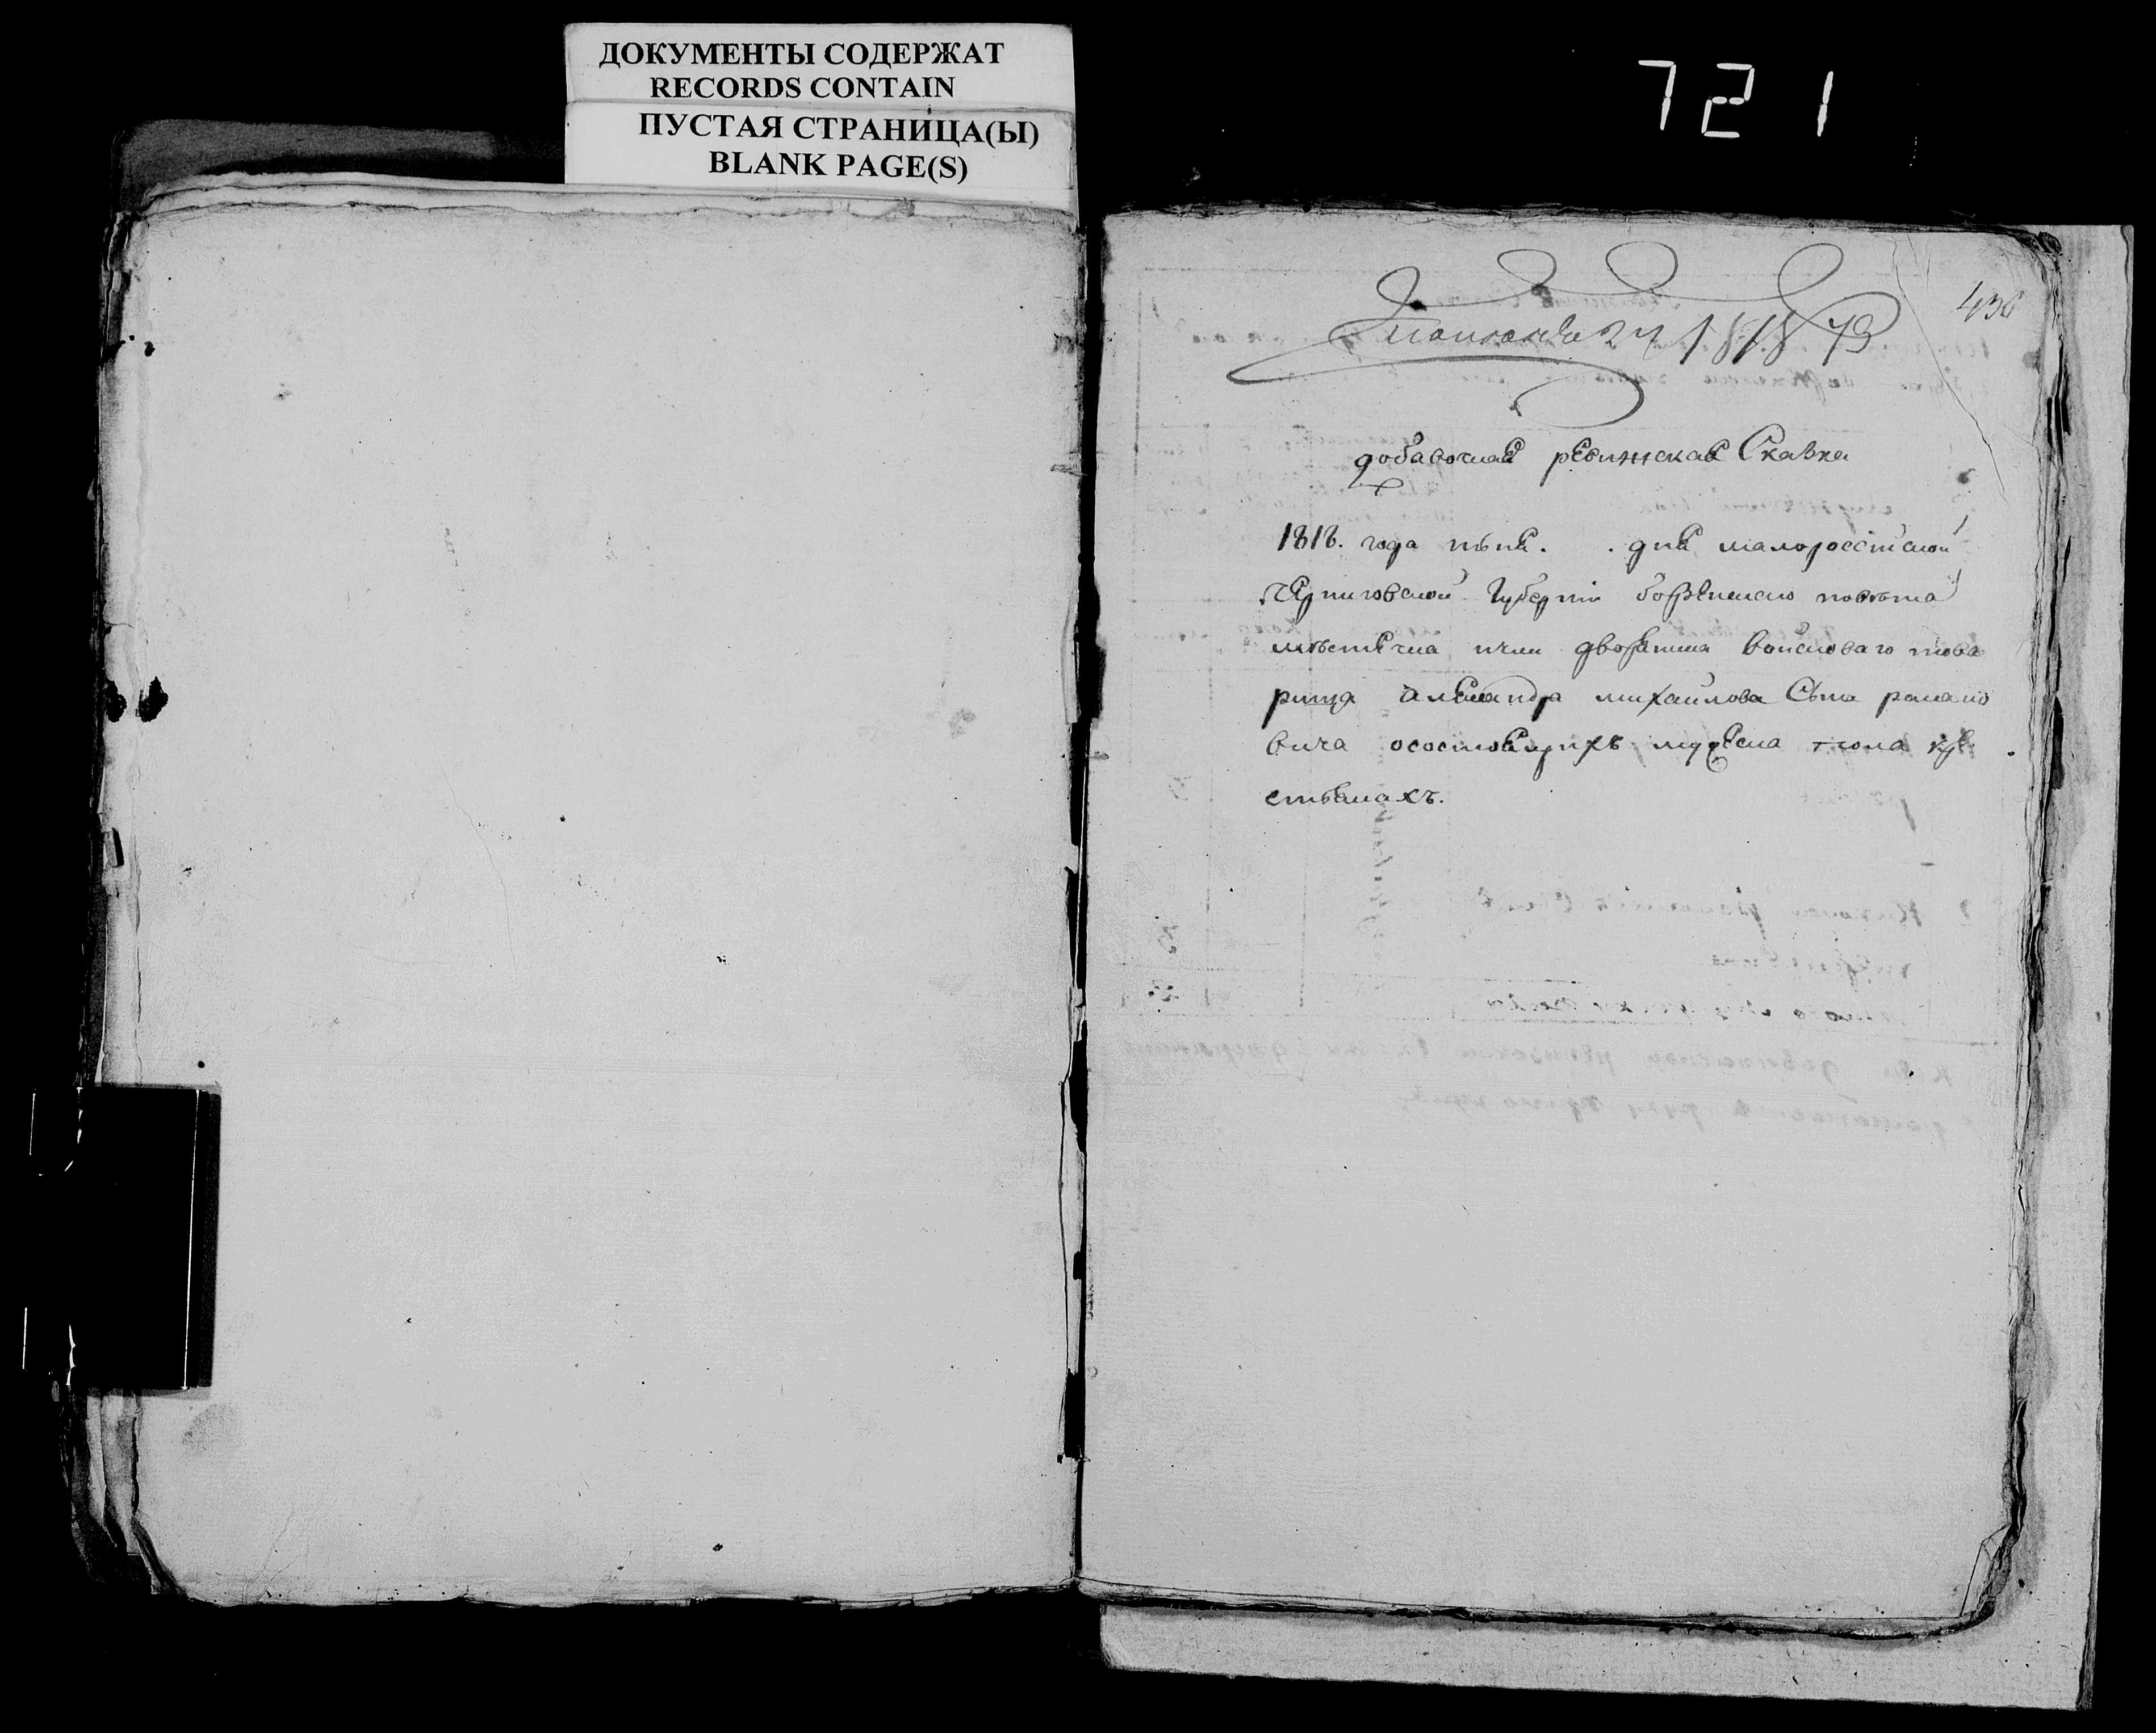 ДОКУМЕНТЫ СОДЕРЖАТ
RECORDS CONTAIN
ПУСТАЯ СТРАНИЦА(Ы)
BLANK PAGE(S)
721
1818
добавочная ревижская Сказка
1818. года июня. . дня малороссійской
черниговской губерніи борзенского повѣта
мѣстечка ични дворянина войскового това
рища александра михайлова Сына романо
вича осостоящихъ мужеска пола кре
стьянахъ.